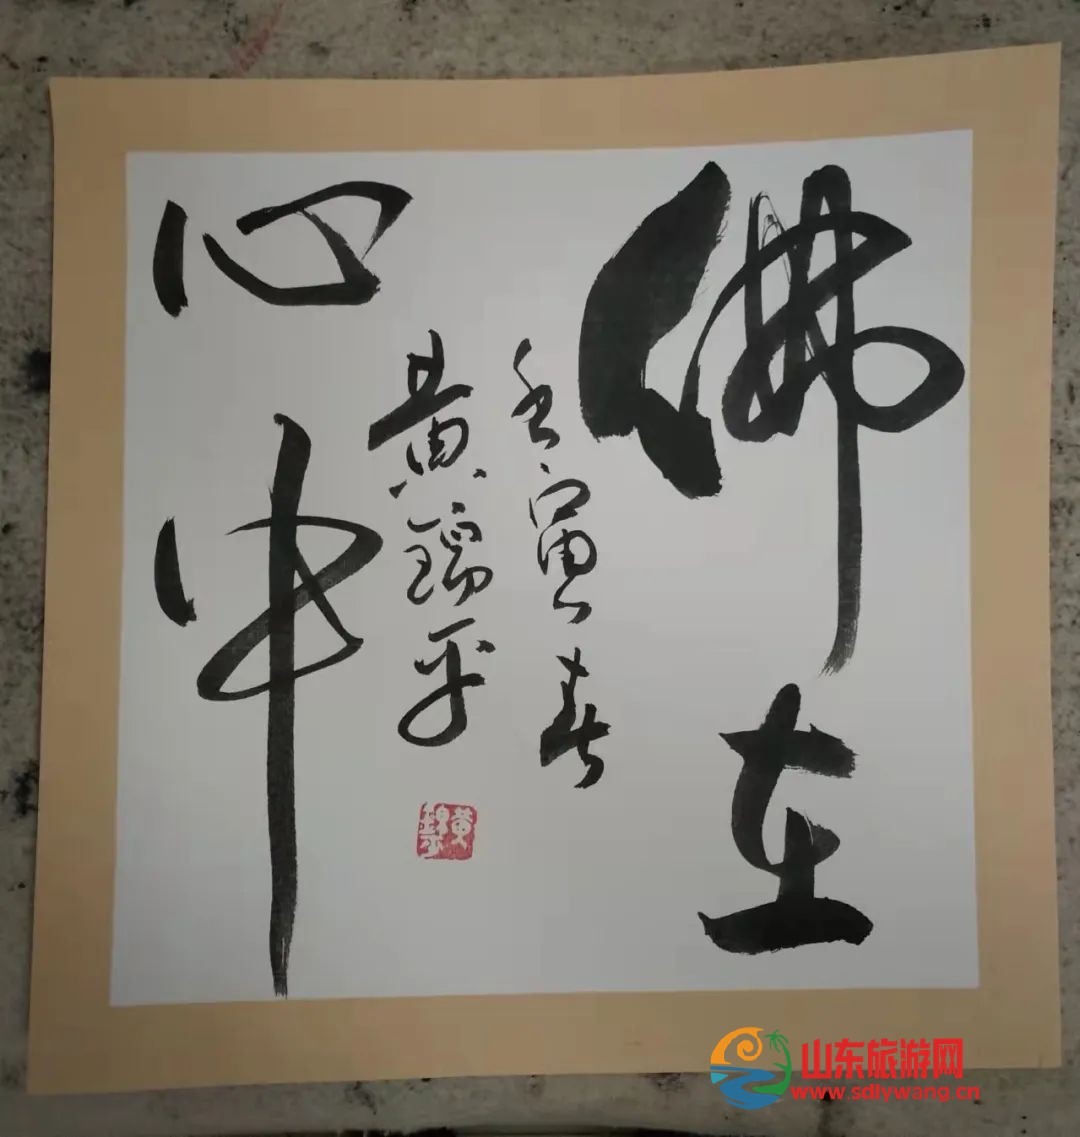 佛在
心中
壬寅春
黄瑞平
山东旅游网
www.sdlywang.cn